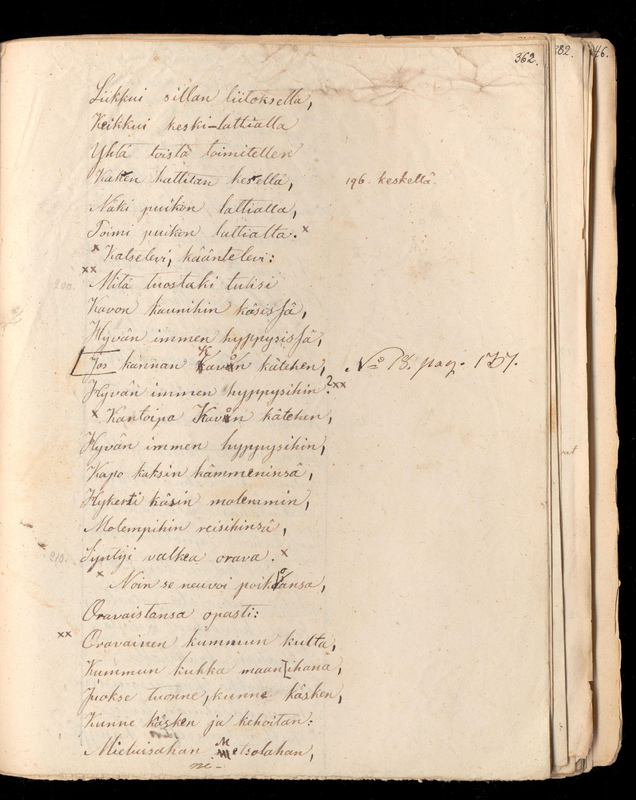 362.
382.
46.
Liikkui sillan liitoksella,
Keikkui keski-lattialla
Yhtä toista toimitellen
Kahen hattilan keskellä,
196. keskellä.
Näki puikon lattialla,
Toimi puikon lattialta. x
x Katselevi, kääntelevi:
200.
xx Mitä tuostaki tulisi
Kavon kaunihin käsissä,
Hyvän immen hyppysissä,
[Jos kannan Kavon kätehen, No 18. pag. 137.
Hyvän immen hyppysihin? xx
x Kantoipa Kavon kätehen,
Hyvän immen hyppysihin,
Kapo kaksin kämmeninsä,
Hykerti käsin molemmin,
Molempihin reisihinsä,
210. Syntyi valkea orava. x
x Noin se neuvoi poikoansa,
Oravaistansa opasti:
xx Oravainen kummun kulta,
Kummun kukka maan ihana,
Juokse tuonne, kunne käsken,
Kunne käsken ja kehoitan:
Mieluisahan Metsolahan,
ni-